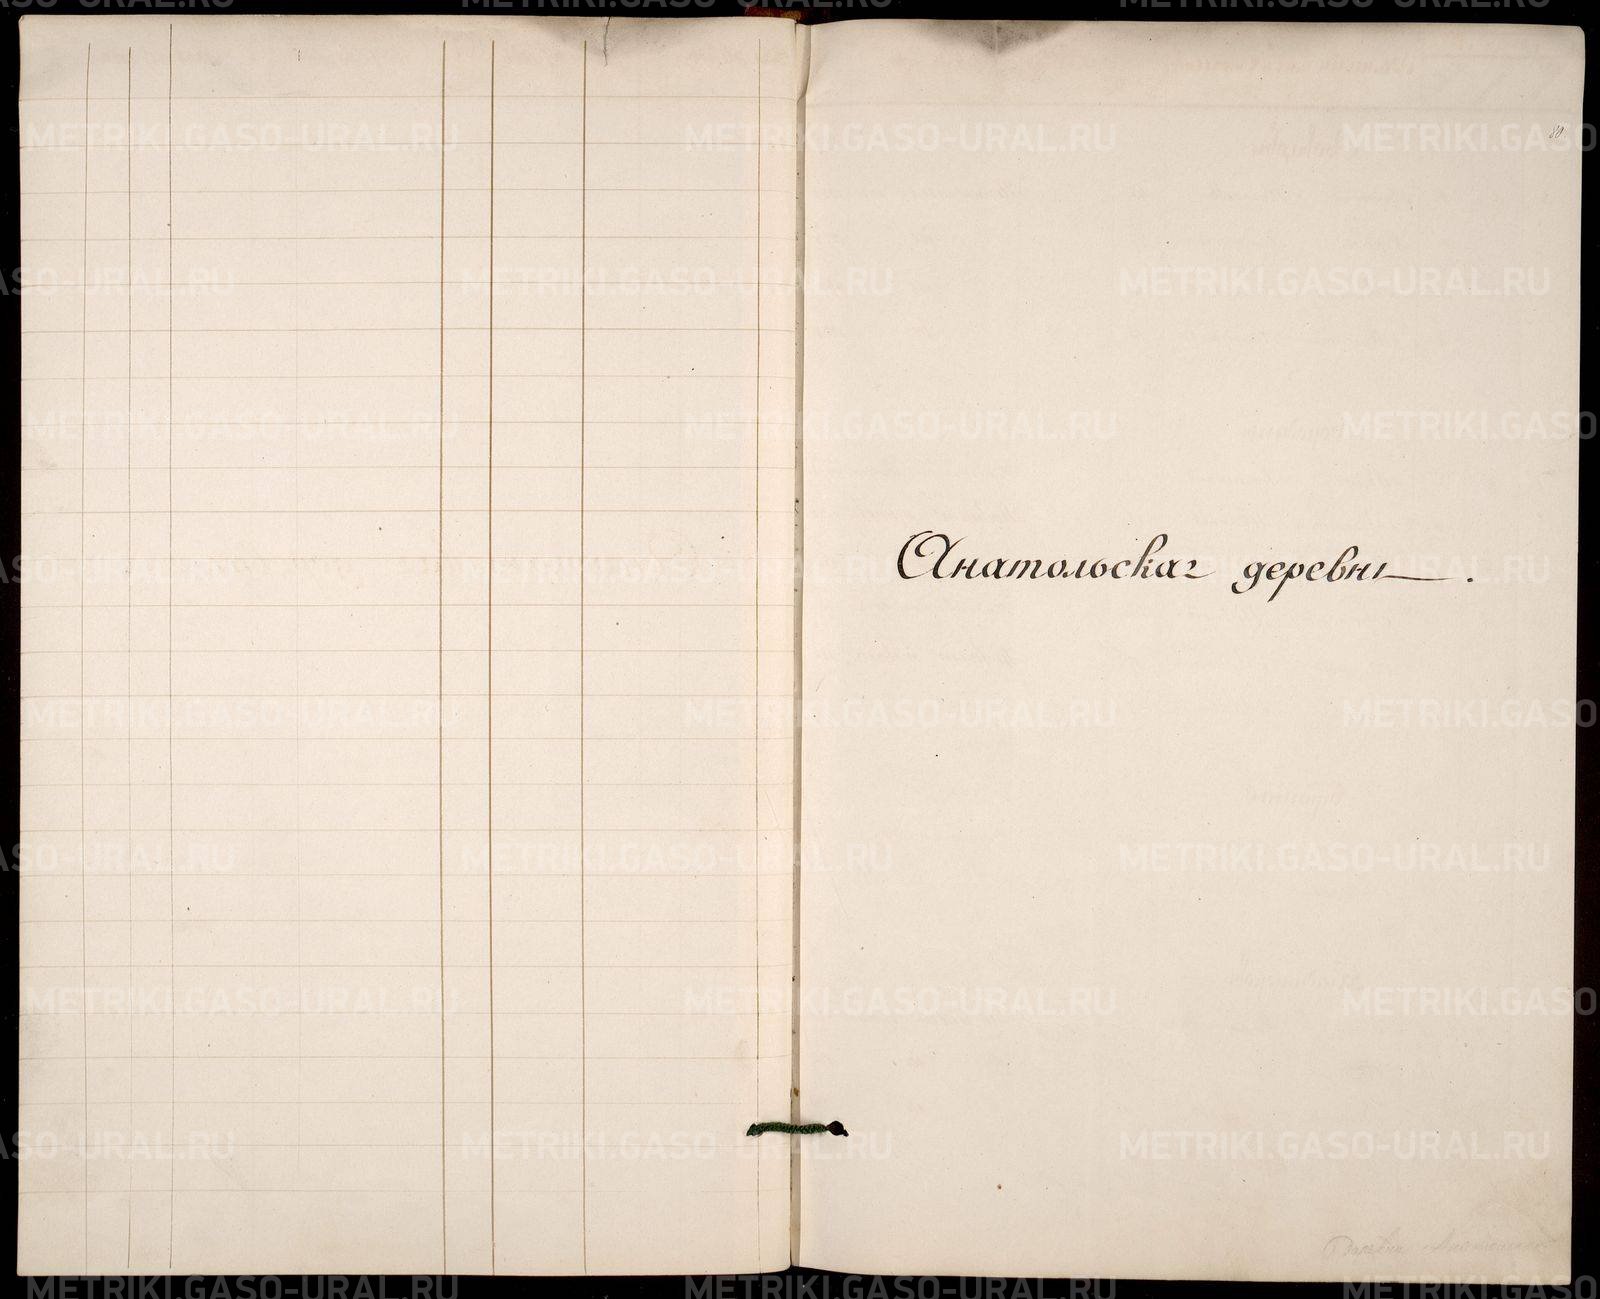 80.
Анатольская деревня.
METRIKI.GASO-URAL.RU